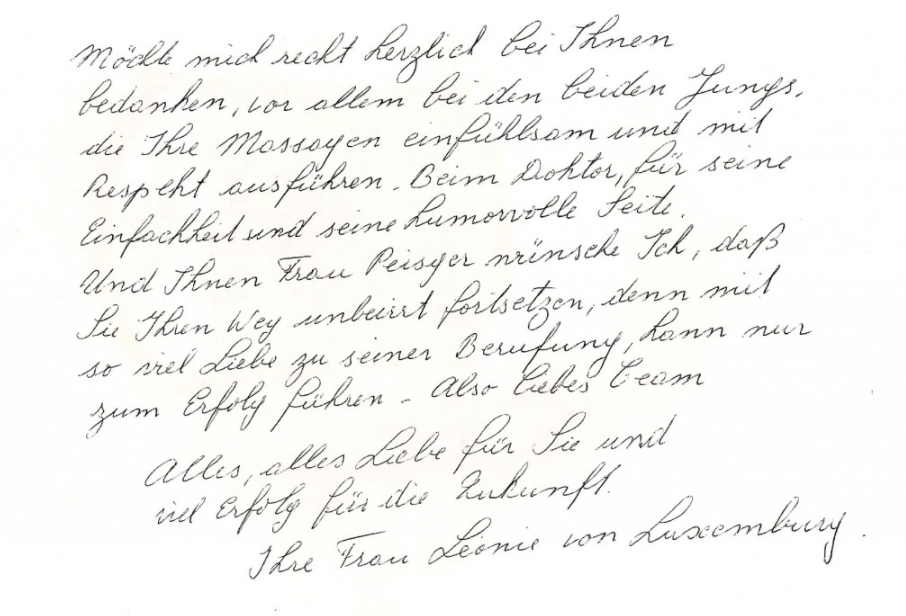 Möchte mich recht herzlich bei Ihnen
bedanken, vor allem bei den beiden Jungs,
die Ihre Massagen einfühlsam und mit
Respekt ausführen. Beim Doktor, für seine
Einfachheit und seine humorvolle Seite.
Und Ihnen Frau Peisger wünsche Ich, daß
Sie Ihren Weg unbeirrt fortsetzen, denn mit
so viel Liebe zu seiner Berufung, kann nur
zum Erfolg führen - Also liebes Team
Alles, alles Liebe für Sie und
viel Erfolg für die Zukunft.
Ihre Frau Léonie von Luxemburg.